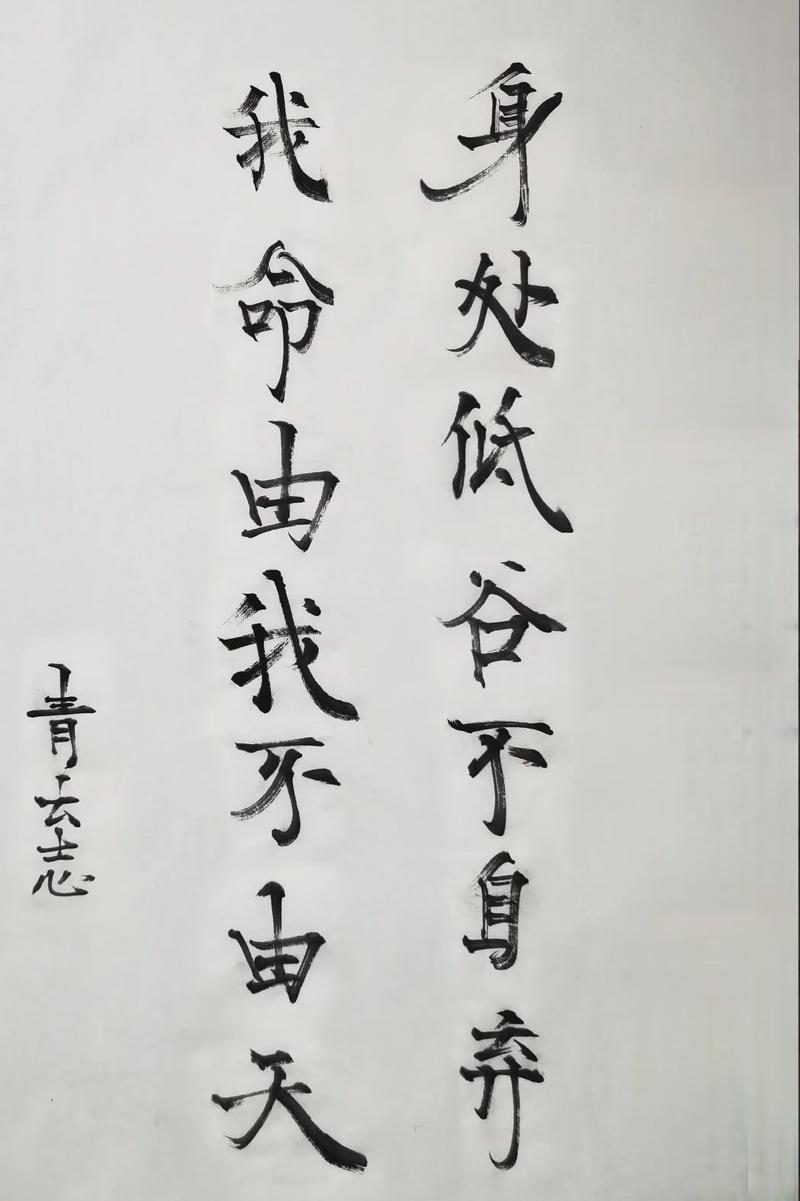 身处低谷不自弃
我命由我不由天
青云志